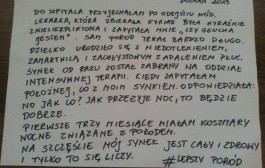 2015
DO SZPITALA PRZYJECHAŁAM PO ODEJŚCIU WÓD.
LEKARKA, KTÓRA ZBIERAŁA WYWIAD BYŁA WYRAŹNIE
ZNIECIERPLIWIONA I ZAPYTAŁA MNIE, "CZY GŁUCHA
JESTEM". SAM PORÓD TRWAŁ BARDZO DŁUGO.
DZIECKO URODZIŁO SIĘ Z NIEDOTLENIENIEM,
ZAMARTWICĄ I ZACHŁYSTOWYM ZAPALENIEM PŁUC.
SYNEK OD RAZU ZOSTAŁ ZABRANY NA ODDZIAŁ
INTENSYWNEJ TERAPII. KIEDY ZAPYTAŁAM
POŁOŻNEJ, CO Z MOIM SYNKIEM, ODPOWIEDZIAŁA:
NO JAK CO? JAK PRZEŻYJE NOC, TO BĘDZIE
DOBRZE.
PIERWSZE TRZY MIESIĄCE MIAŁAM KOSZMARY
NOCNE ZWIĄZANE Z PORODEM.
NA SZCZĘŚCIE MÓJ SYNEK JEST CAŁY I ZDROWY
I TYLKO TO SIĘ LICZY.
#LEPSZY PORÓD